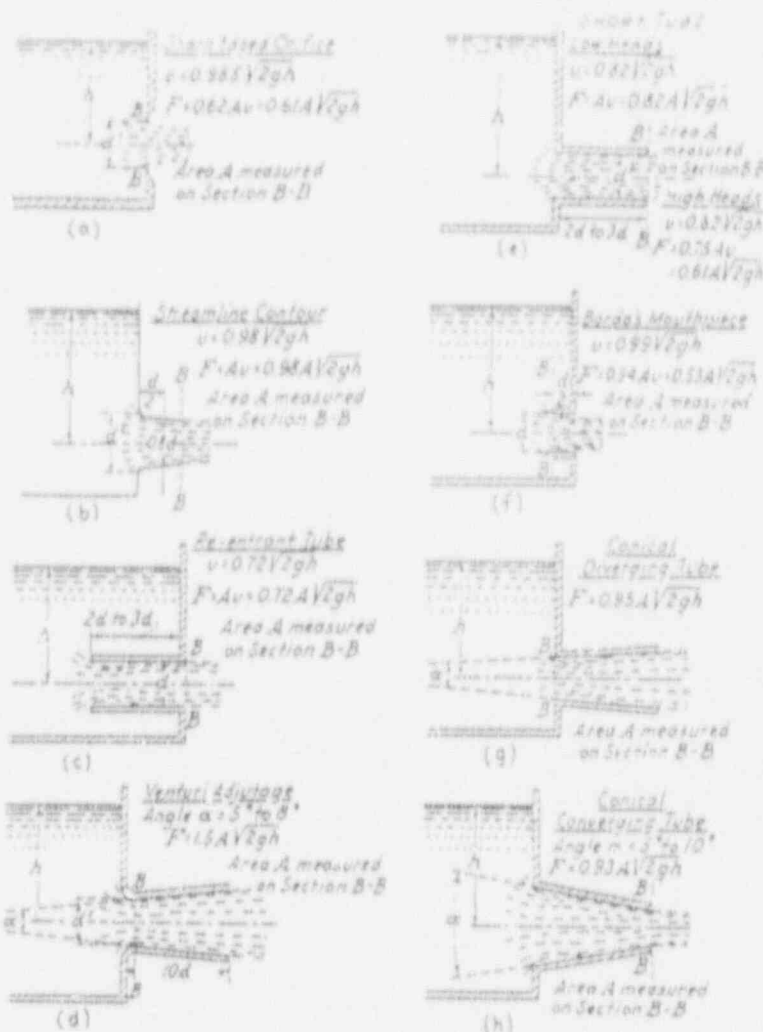 Sharp Edged Orifice
h
v=0.985√2gh
F=0.62Av=0.61A√2gh
B
d
B
Area A measured
on Section B-B
(a)
Streamline Contour
v=0.98√2gh
h
d
2
B
F=Av=0.98A√2gh
Area A measured
on Section B-B
d
B
(b)
Re-entrant Tube
v=0.72√2gh
F=Av=0.72A√2gh
h
2d to 3d
Area A measured
on Section B-B
B
d
B
(c)
Venturi Adjutage
Angle α=5° to 8°
F=1.5A√2gh
h
Area A measured
on Section B-B
B
α
d
10d
B
(d)
Short Tube
Low Heads
v=0.82√2gh
F=Av=0.82A√2gh
h
B
Area A
measured
on Section B-B
d
High Heads
2d to 3d
B
v=0.82√2gh
F=0.75Av
=0.61A√2gh
(e)
Borda's Mouthpiece
v=0.99√2gh
h
B
d
F=0.54Av=0.53A√2gh
Area A measured
on Section B-B
d
B
(f)
Conical
Diverging Tube
F=0.95A√2gh
h
B
α
B
Area A measured
on Section B-B
(g)
Conical
Converging Tube
h
F=0.93A√2gh
B
α
B
Area A measured
on Section B-B
(h)